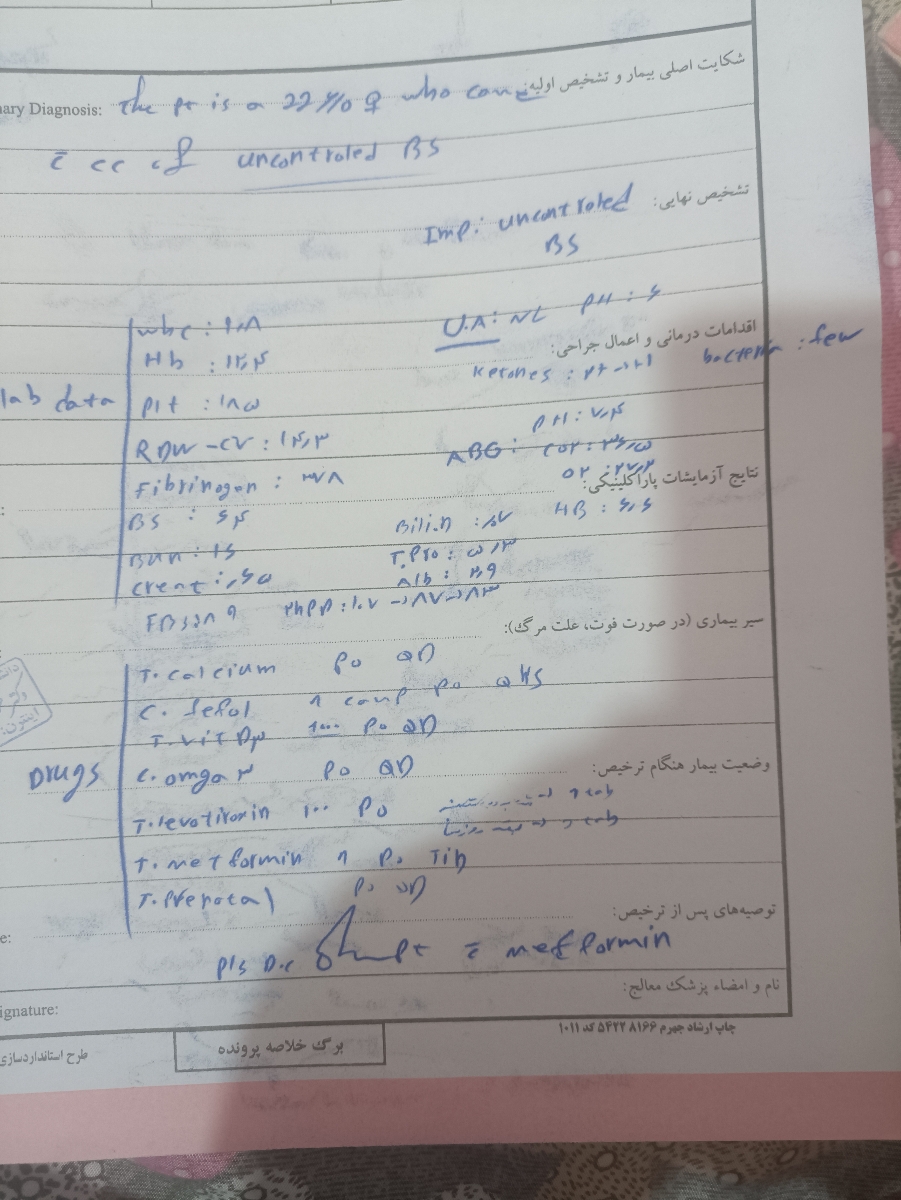 شکایت اصلی بیمار و تشخیص اولیه:
ary Diagnosis: The pt is a 22 y/o ♀ who came
c̄ cc of uncontroled BS
تشخیص نهایی:
Imp: uncontroled
BS
اقدامات درمانی و اعمال جراحی:
lab data
wbc : ۱۰٫۸
Hb : ۱۲٫۴
Plt : ۱۸۵
RDW-CV : ۱۴٫۳
Fibrinogen : ۳۷۸
BS : ۶۴
Bun : ۱۶
Creat : ٫۶۵
U.A: NL PH : ۶
Ketones : ۲+ → ۱+ bacteria : few
ABG: PH : ۷٫۴
CO۲ : ۳۶٫۵
O۲ : ۲۷٫۳
نتایج آزمایشات پاراکلینیکی:
HB : ۶٫۶
T.Pro : ۵٫۳
Alb : ۲٫۹
FBS ۲hPP : ۱۰۷ → ۸۷ → ۸۳
سیر بیماری (در صورت فوت، علت مرگ):
Drugs
T. calcium Po QD
C. fefol ۱ Po QHS
T. vit D۳ ۱۰۰۰ Po QD
C. omga ۳ Po QD
وضعیت بیمار هنگام ترخیص:
T. levotiroxin ۱۰۰ Po
T. metformin ۱ Po TiD
T. Prenatal Po QD
توصیه‌های پس از ترخیص:
e:
pls D.c pt c̄ metformin
نام و امضاء پزشک معالج:
ignature:
چاپ ارشاد جهرم ۵۴۲۲۸۱۶۶ کد ۱۰۱۱
برگ خلاصه پرونده
طرح استانداردسازی